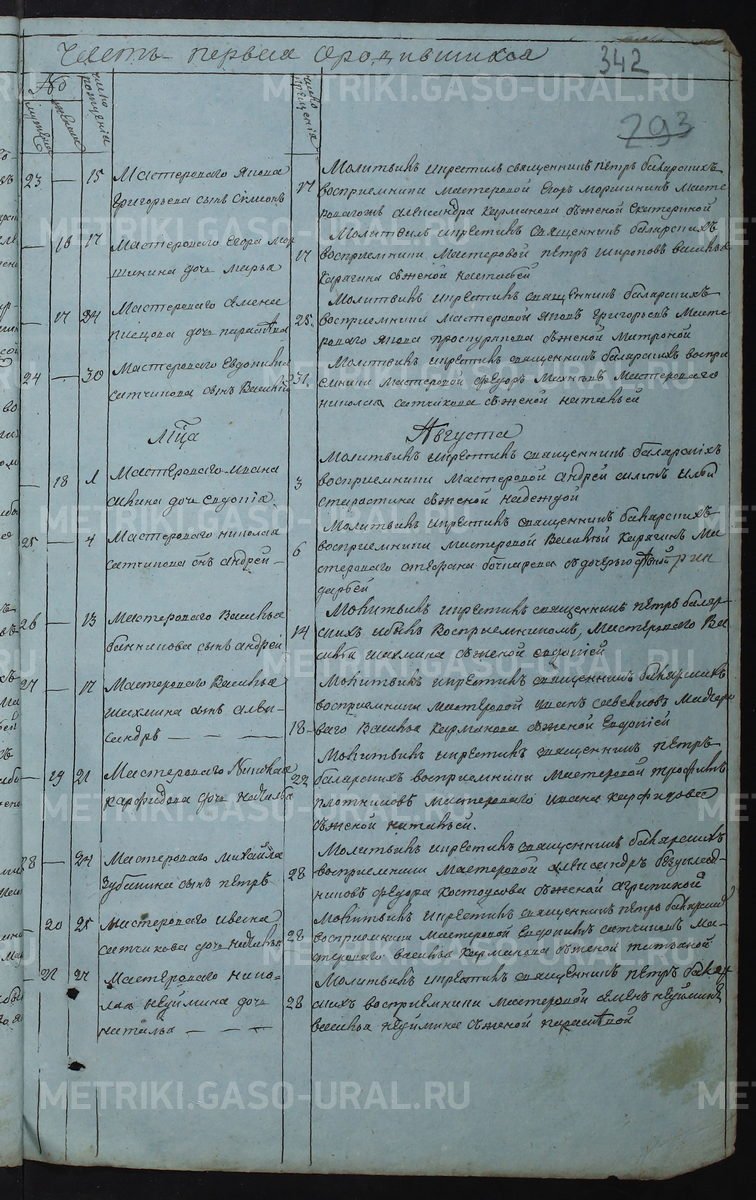 Часть первая о родившихся
342
293
№
мужеска
женска
число рождения
число крещения
23 — 15 Мастероваго Якова
Григорьева сынъ Симеонъ
17 Молитвилъ икрестилъ священникъ петръ бакарскихъ
восприемники мастеровой Егоръ Моршининъ Масте
александра Карманова сженой Екатериной
— 16 17 Мастероваго Егора мор
шинина дочь марья
17 Молитвилъ икрестилъ священникъ бакарскихъ
восприемники Мастеровой петръ широковъ василья
Карагина сженой настасьей
— 17 24 Мастероваго семена
писцова дочь парасковья
25 Молитвилъ икрестилъ священникъ бакарскихъ
восприемники мастеровой Яковъ Григорьевъ Масте
роваго Якова проскурякова сженой Матроной
24 — 30 Мастероваго Евдокима
сатчикова сынъ Василий
31 Молитвилъ икрестилъ священникъ бакарскихъ воспри
емники мастеровой федоръ Мастероваго
николая сатчикова сженой натальей
Мца Августа
— 18 1 Мастероваго ивана
силина дочь евдокия
3 Молитвилъ икрестилъ священникъ бакарскихъ
восприемники Мастеровой андрей силинъ ильи
старостина сженой надеждой
25 — 4 Мастероваго николая
сатчикова снъ андрей —
6 Молитвилъ икрестилъ священникъ бакарскихъ
восприемники мастеровой Василий Карагинъ Ма
стероваго степана бочкарева сдочерью
дарьей
26 — 13 Мастероваго Василья
банникова сынъ андрей
14 Молитвилъ икрестилъ священникъ петръ бакар
скихъ ибылъ восприемникомъ, Мастероваго Ва
силья шахмина сженой евдокией
27 — 17 Мастероваго Василья
шахмина сынъ алек
сандръ — — —
18 Молитвилъ икрестилъ священникъ бакарских
восприемники мастеровой иванъ савенковъ Мастеро
ваго Василья Карманова сженой Евдокией
— 19 21 Мастероваго Николая
карфидова дочь наталья
22 Молитвилъ икрестилъ священникъ петръ
бакарскихъ восприемники Мастеровой трофимъ
плотниковъ мастероваго ивана карфидова
сженой натальей.
28 — 24 Мастероваго михайла
Зубакина сынъ петръ
28 Молитвилъ икрестилъ священникъ бакарскихъ
восприемники мастеровой александръ
федора костоусова сженой агрипиной
— 20 25 Мастероваго ивана
сатчикова дочь наталья
28 Молитвилъ икрестилъ священникъ петръ бакарских
восприемники мастеровой Евдокимъ сатчиковъ Ма
стероваго василья Карманова сженой татьяной
— 21 27 Мастероваго нико
лая неуймина дочь
наталья — — —
28 Молитвилъ икрестилъ священникъ петръ бакар
скихъ восприемники мастеровой семенъ неуйминъ
василья неуймина сженой парасковьей
METRIKI.GASO-URAL.RU